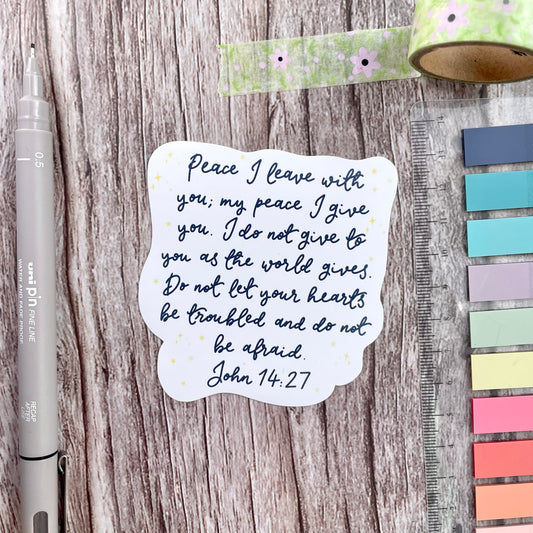 Peace I leave with
you; my peace I give
you. I do not give to
you as the world gives.
Do not let your hearts
be troubled and do not
be afraid.
John 14:27
0.5
uni pin FINE LINE
WATER AND FADE PROOF
RECAP
AFTER